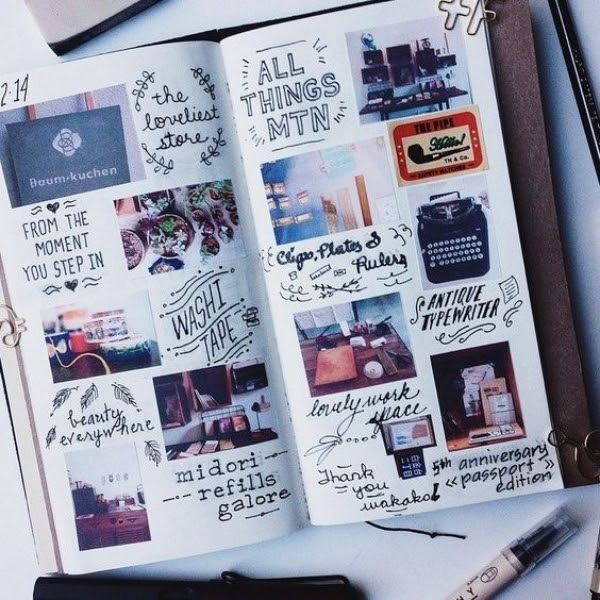 2.14
the
loveliest
store
Baum-kuchen
FROM THE
MOMENT
YOU STEP IN
WASHI
TAPE
beauty
everywhere
midori
refills
galore
ALL
THINGS
MTN
THE PIPE
Hello!
TN & Co.
SAFETY MATCHES
Clips, Plates &
Rulers
ANTIQUE
TYPEWRITER
lovely work
space
Thank
you
wakako!
5th anniversary
"passport"
edition